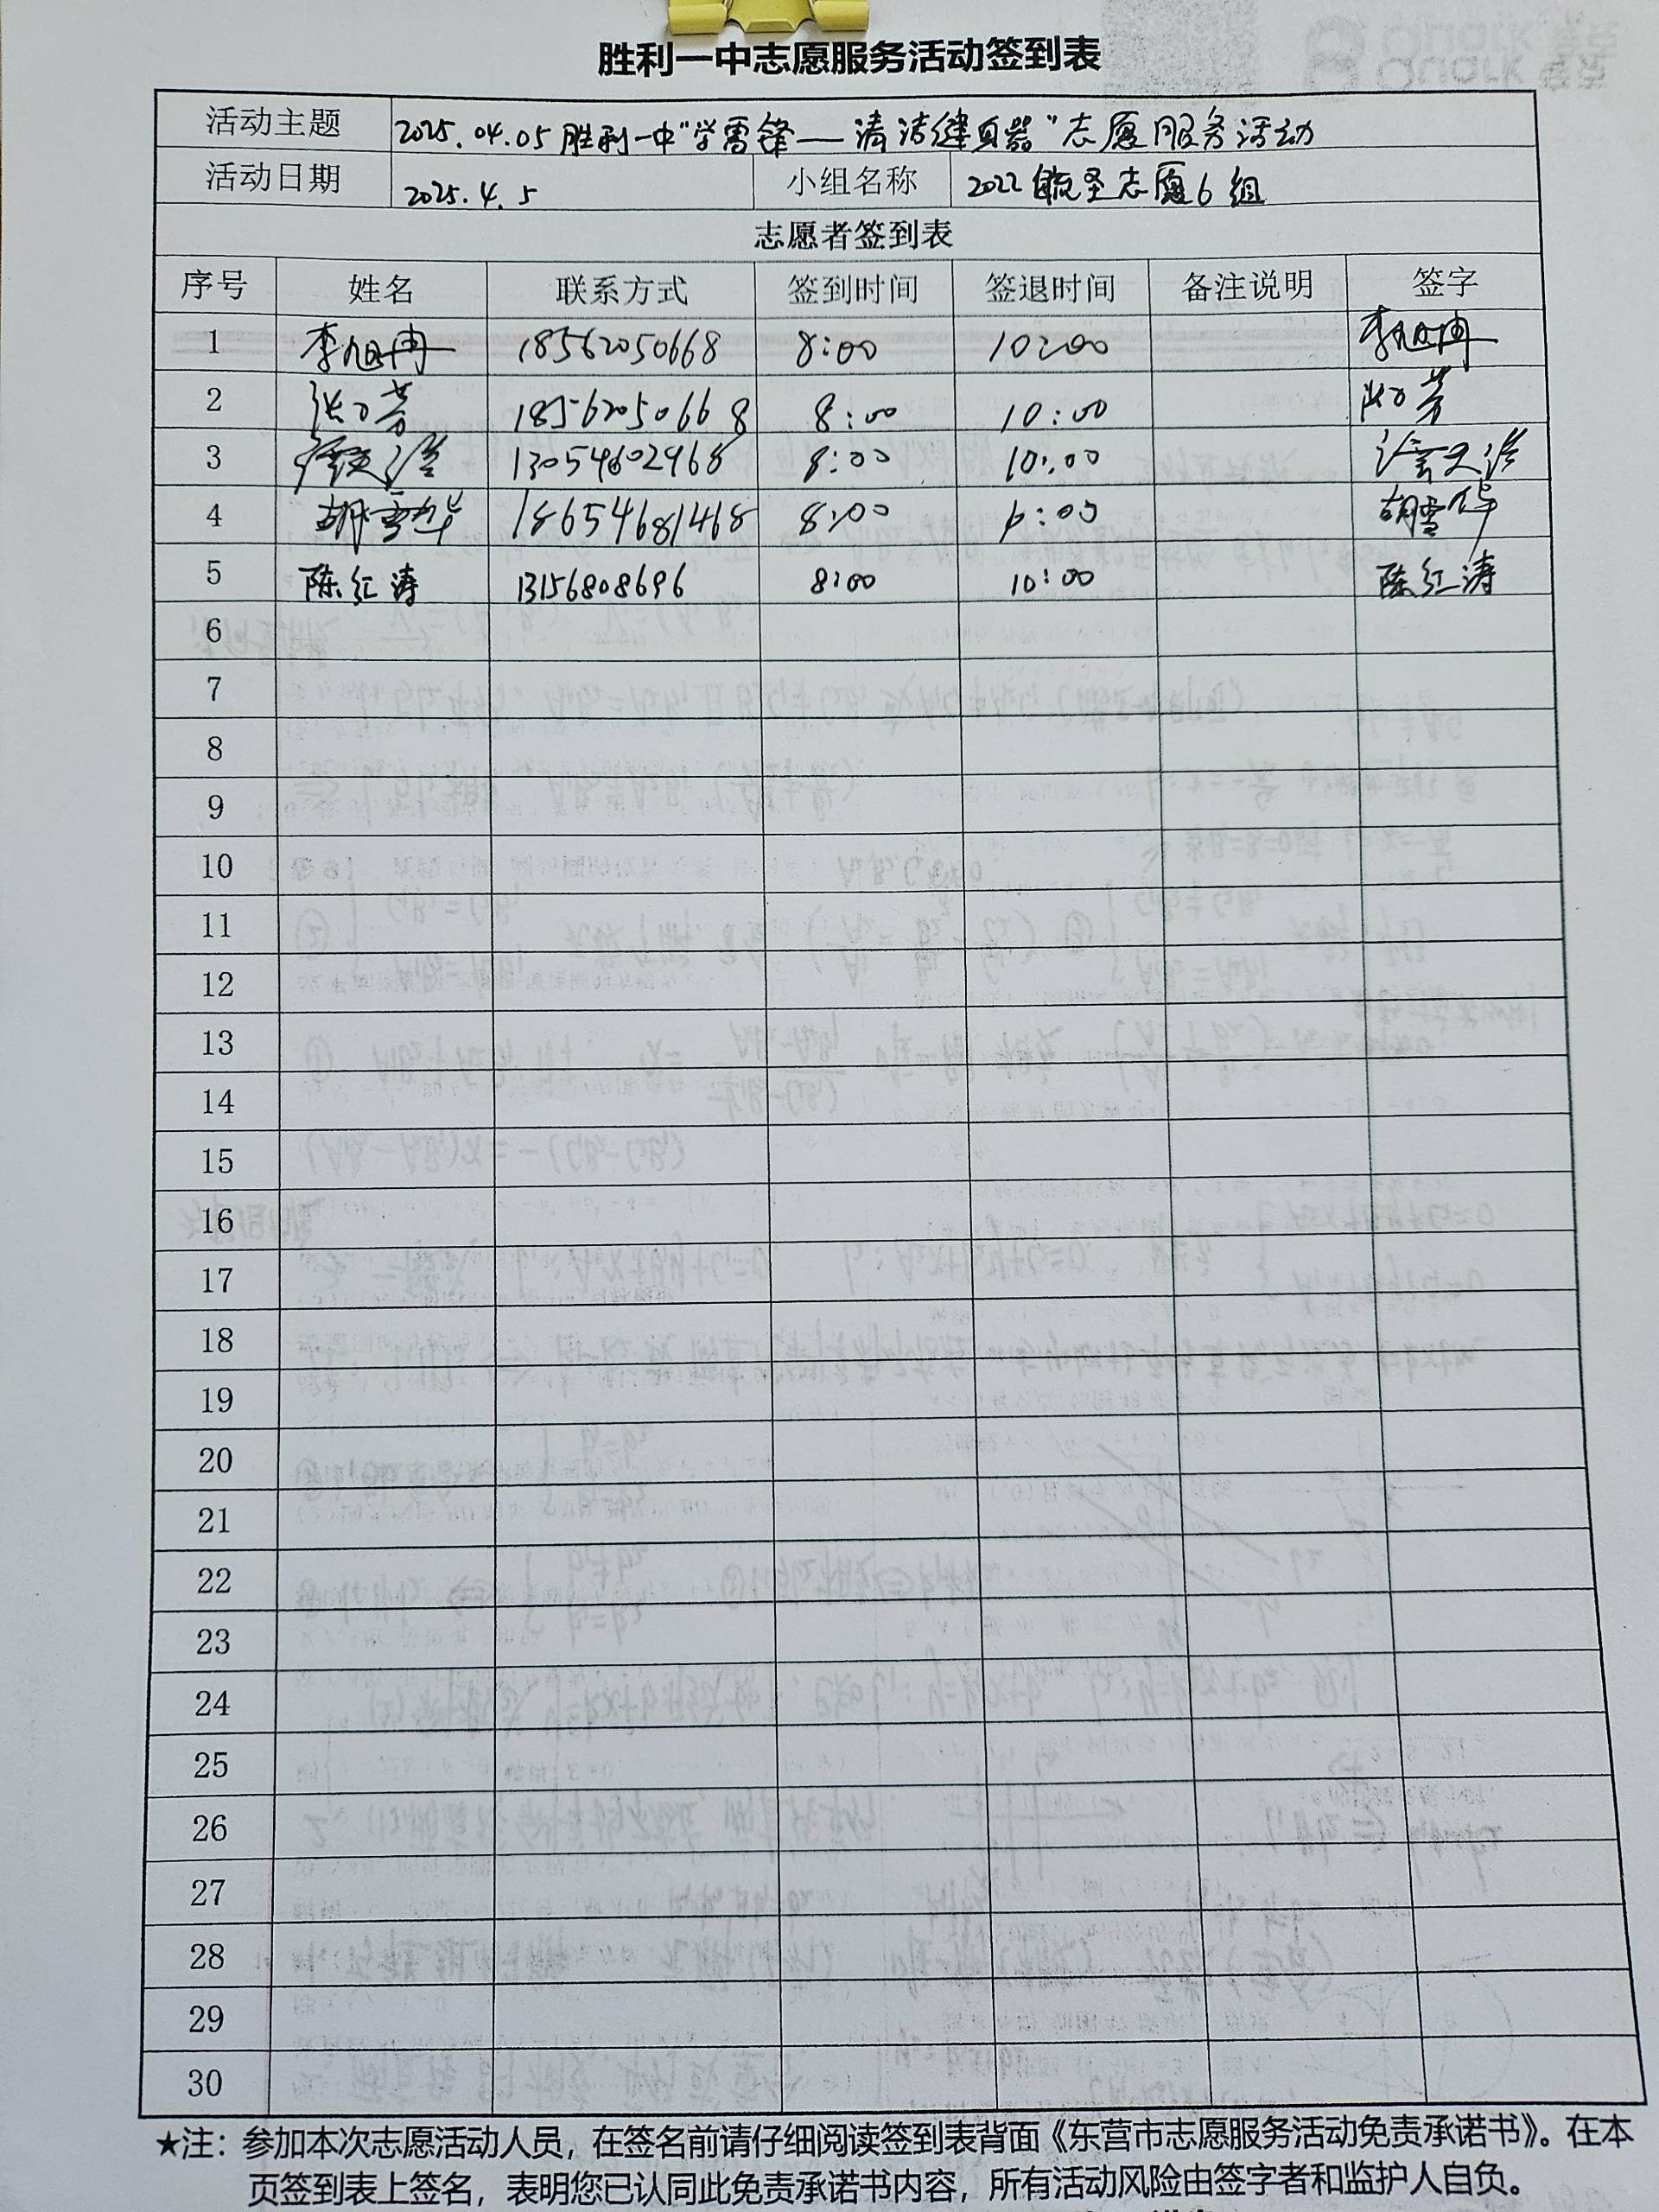 胜利一中志愿服务活动签到表
活动主题 2025.04.05胜利一中"学雷锋——清洁健身器"志愿服务活动
活动日期 2025.4.5 小组名称 2022毓圣志愿6组
志愿者签到表
序号 姓名 联系方式 签到时间 签退时间 备注说明 签字
1 李旭冉 18562050668 8:00 10:00 李旭冉
2 18562050668 8:00 10:00
3 13054602968 8:00 10:00
4 胡雪华 18654681468 8:00 胡雪华
5 陈红涛 13156808696 8:00 10:00 陈红涛
6
7
8
9
10
11
12
13
14
15
16
17
18
19
20
21
22
23
24
25
26
27
28
29
30
★注：参加本次志愿活动人员，在签名前请仔细阅读签到表背面《东营市志愿服务活动免责承诺书》。在本
页签到表上签名，表明您已认同此免责承诺书内容，所有活动风险由签字者和监护人自负。